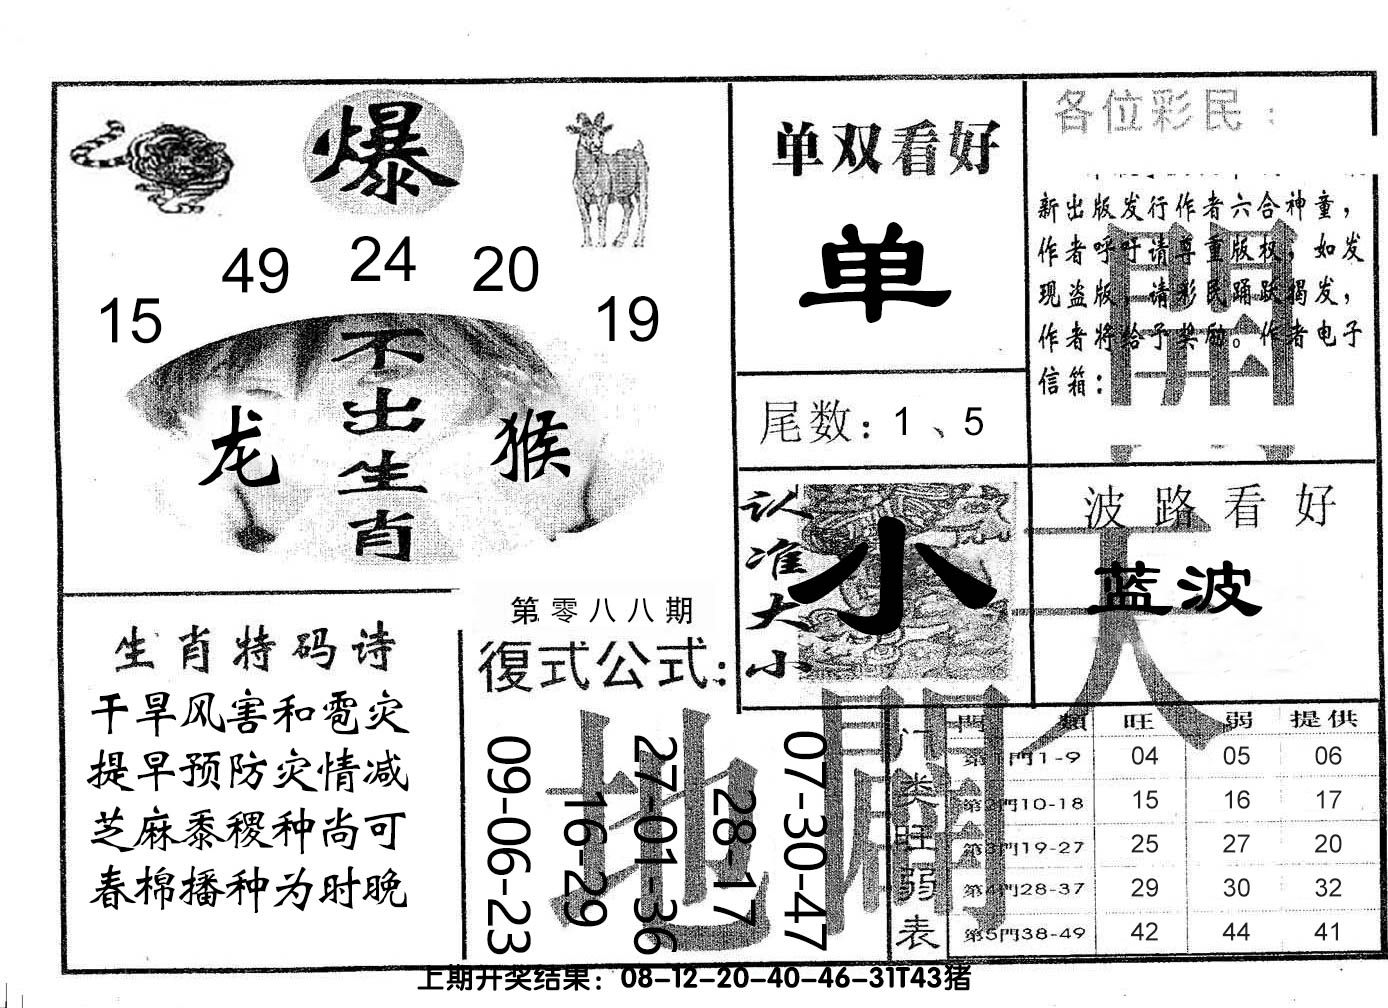 爆
15 49 24 20 19
不出生肖
龙 猴
单双看好
单
尾数：1、5
认准大小
小
各位彩民：
新出版发行作者六合神童，
作者呼吁请尊重版权，如发
现盗版，请彩民踊跃揭发，
作者将给予奖励。作者电子
信箱：
波路看好
蓝波
生肖特码诗
干旱风害和雹灾
提早预防灾情减
芝麻黍稷种尚可
春棉播种为时晚
第零八八期
復式公式：
09-06-23
16-29
27-01-36
28-17
07-30-47
天
開
地
門类旺弱表
門類 旺 弱 提供
第1門1-9 04 05 06
第2門10-18 15 16 17
第3門19-27 25 27 20
第4門28-37 29 30 32
第5門38-49 42 44 41
上期开奖结果：08-12-20-40-46-31T43猪